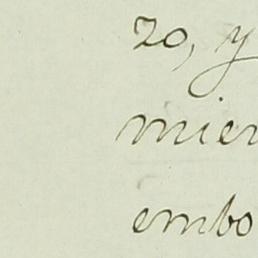 zo, y
mien
embo